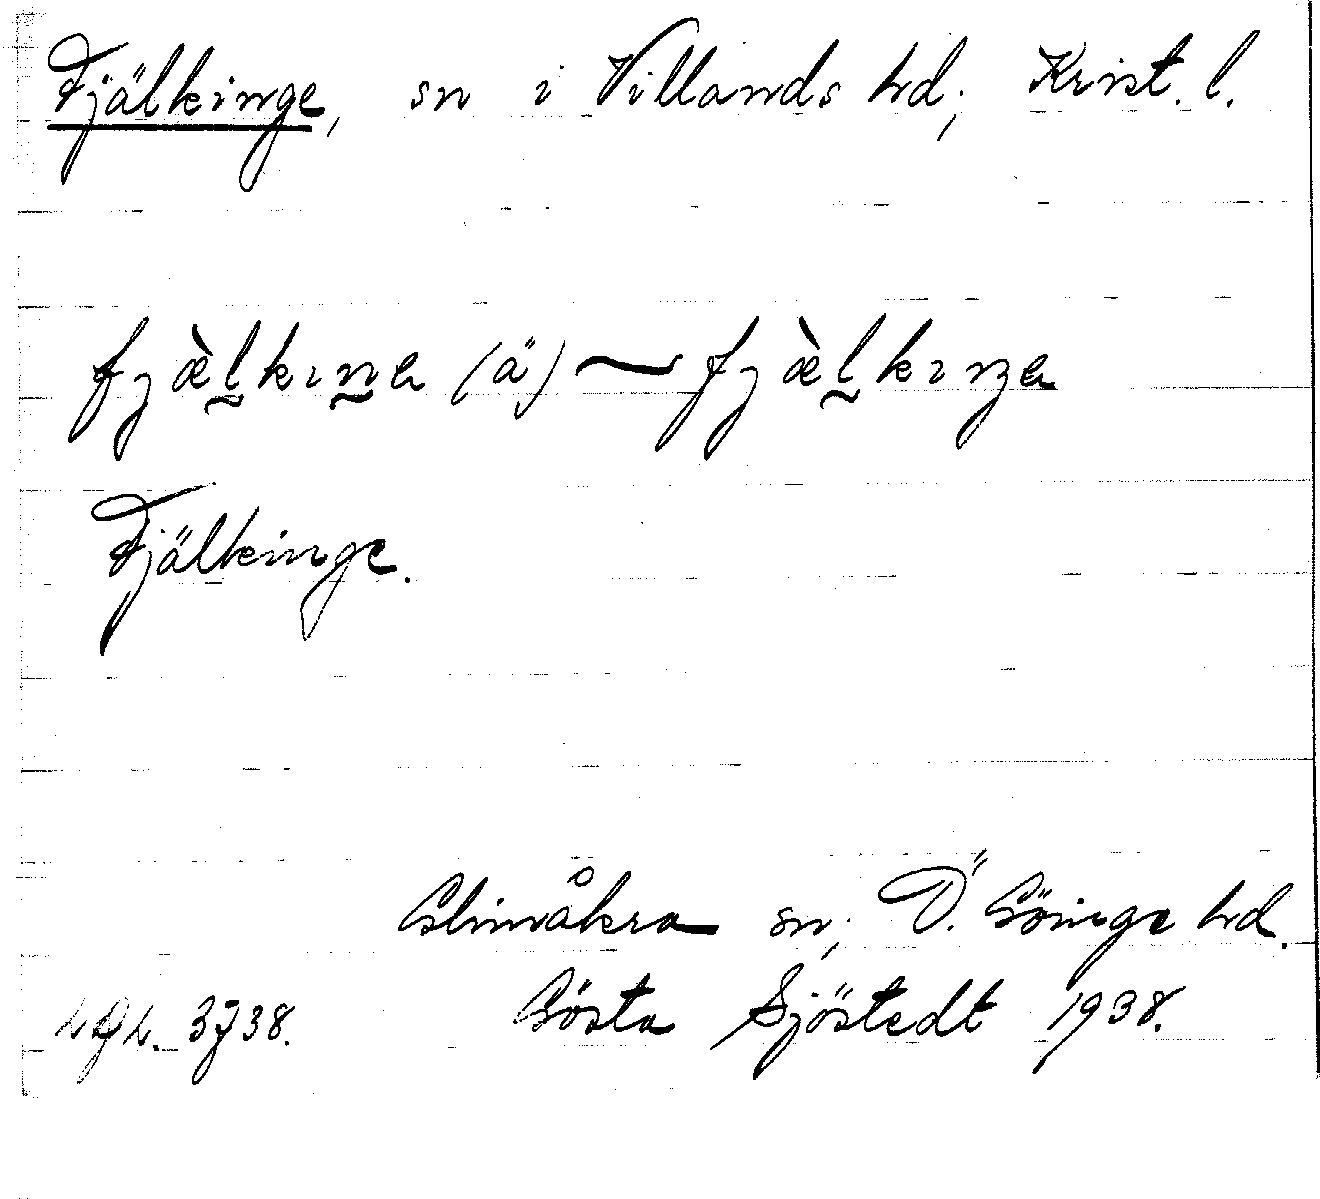 Fjälkinge, sn i Villands hd; Krist. l.
fjæ̀l̰kın̰a (ä) ~ fjæ̀l̰kıŋa
Fjälkinge.
Glimåkra sn; Ö. Göinge hd.
3738. Gösta Sjöstedt 1938.